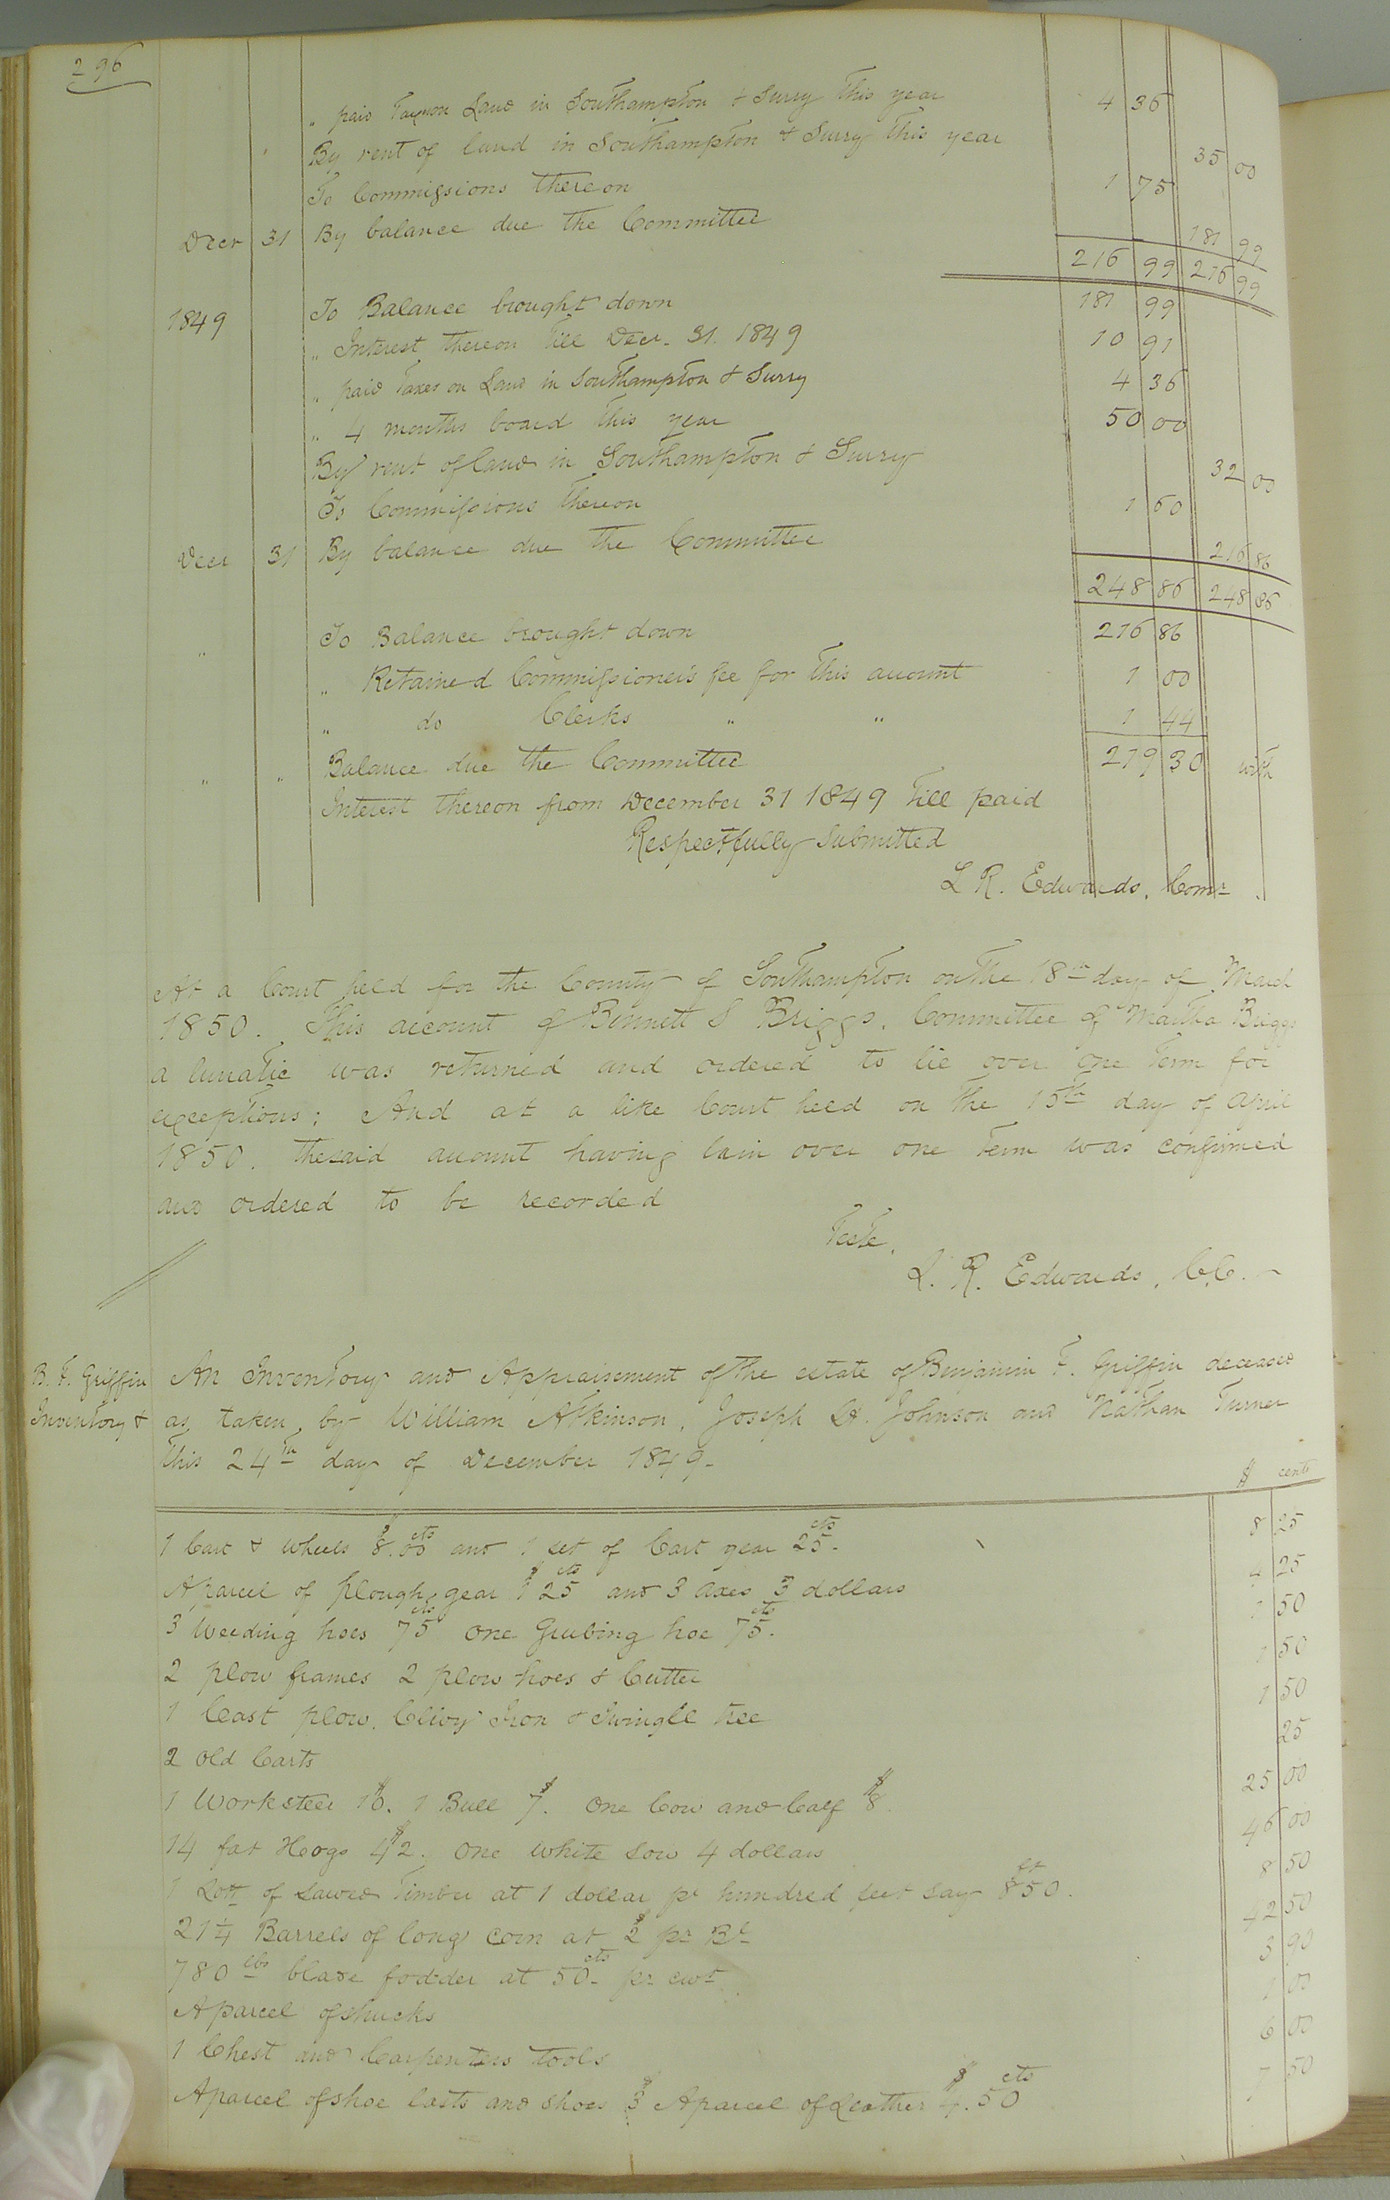 296
" paid Taxes on Land in Southampton & Surry this year 4 36
By rent of land in Southampton & Surry this year 35 00
To Commissions thereon 1 75
Decr 31 By balance due the Committee 181 99
216 99 216 99
1849 To Balance brought down 181 99
" Interest thereon till Decr. 31. 1849 10 91
" paid Taxes on Land in Southampton & Surry 4 36
" 4 months board this year 50 00
By rent of land in Southampton & Surry 32 00
To Commissions thereon 1 60
Decr 31 By balance due the Committee 216 86
248 86 248 86
" To Balance brought down 216 86
" Retained Commissioners fee for this account 1 00
" do Clerks " " 1 44
" " Balance due the Committee 219 30 with
Interest thereon from December 31 1849 till paid
Respectfully Submitted
L R. Edwards. Comr.
At a Court held for the County of Southampton on the 18th day of March
1850. This account of Bennett S Briggs. Committee of Martha Briggs
a lunatic was returned and ordered to lie over one term for
exceptions; And at a like Court held on the 15th day of April
1850. the said account having lain over one term was confirmed
and ordered to be recorded
Teste,
L. R. Edwards. C.C.
B. F. Griffin An Inventory and Appraisement of the estate of Benjamin F. Griffin deceased
Inventory & as taken by William Atkinson, Joseph H. Johnson and Nathan Turner
this 24th day of December 1849.
$ cents
1 Cart & wheels $8.00 cts and 1 set of Cart gear 25 cts. 8 25
A parcel of plough gear $1 25 cts and 3 axes 3 dollars 4 25
3 Weeding hoes 75 cts one Grubing hoe 75 cts. 1 50
2 plow frames 2 plow hoes & Cutter 1 50
1 Cast plow, Clivy Iron & Swingle tree 1 50
2 old Carts 25
1 Work steer $10. 1 Bull $7. One Cow and Calf $8. 25 00
14 fat Hoogs $42. One white Sow 4 dollars 46 00
1 Lott of Sawed Timber at 1 dollar pr hundred feet say 8 50. 8 50
21 1/4 Barrels of long corn at $2 pr Bl 42 50
780 lbs blade fodder at 50 cts pr cwt 3 90
A parcel of shucks 1 00
1 Chest and Carpenters tools 6 00
A parcel of shoe lasts and shoes $3 A parcel of Leather $4.50 cts 7 50